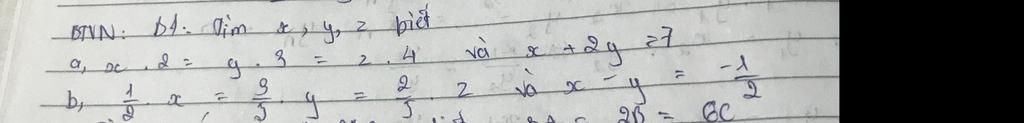 BTVN: B1: Tìm x, y, z biết
a, x . 2 = y . 3 = z . 4 và x + 2y = 7
b, 1/2 . x = 3/5 . y = 2/5 . z và x - y = -1/2
2B = 6C